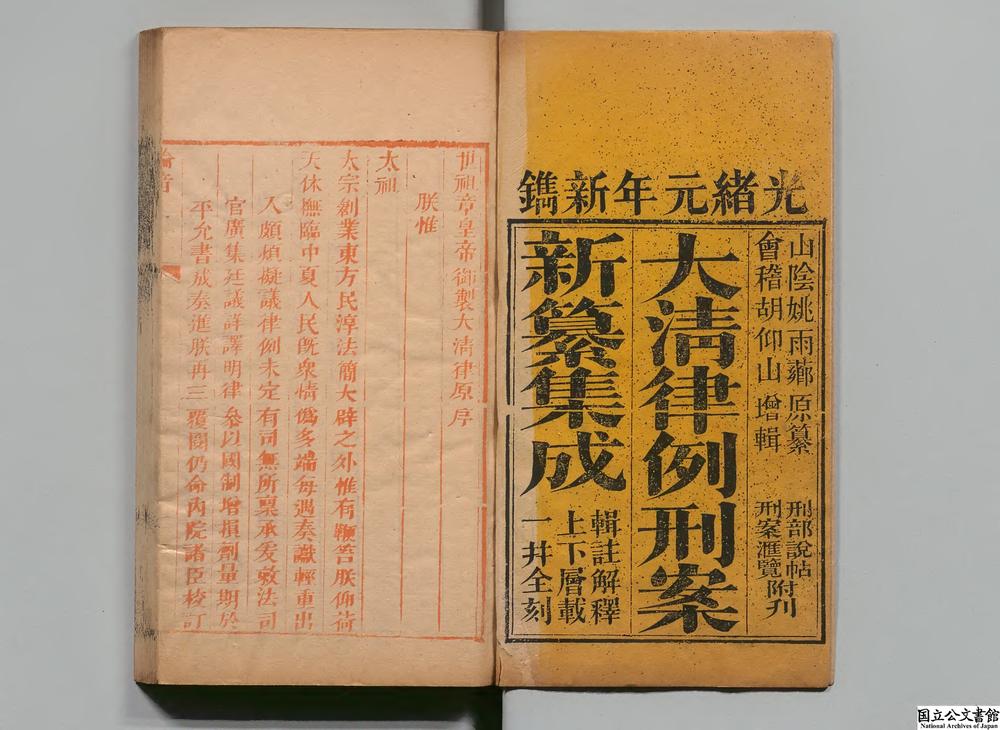 光緒元年新鐫
山陰姚雨薌原纂
會稽胡仰山增輯
刑部說帖
刑案滙覽附刊
大清律例刑案
新纂集成
輯註解釋
上下層載
一并全刻
世祖章皇帝御製大清律原序
朕惟
太祖
太宗創業東方民淳法簡大辟之外惟有鞭笞朕仰荷
天休撫臨中夏人民旣衆情僞多端每遇奏讞輕重出
入頗煩擬議律例未定有司無所禀承爰敕法司
官廣集廷議詳譯明律叅以國制增損劑量期於
平允書成奏進朕再三覆閱仍命內院諸臣校訂
國立公文書館
National Archives of Japan